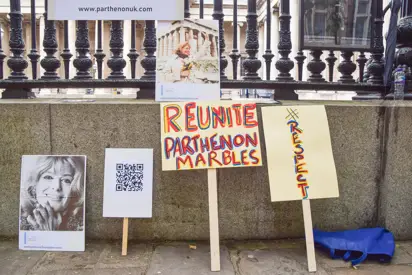 www.parthenonuk.com
REUNITE
PARTHENON
MARBLES
RESPECT